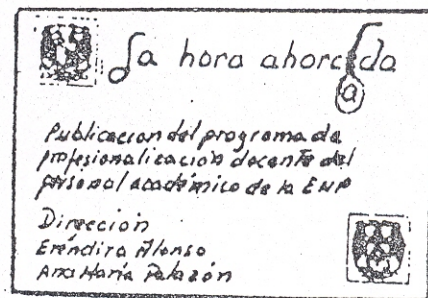 La hora ahorcada
Publicacion del programa de
profesionalización docente del
personal académico de la ENP
Dirección
Eréndira Alonso
Ana María Palazón